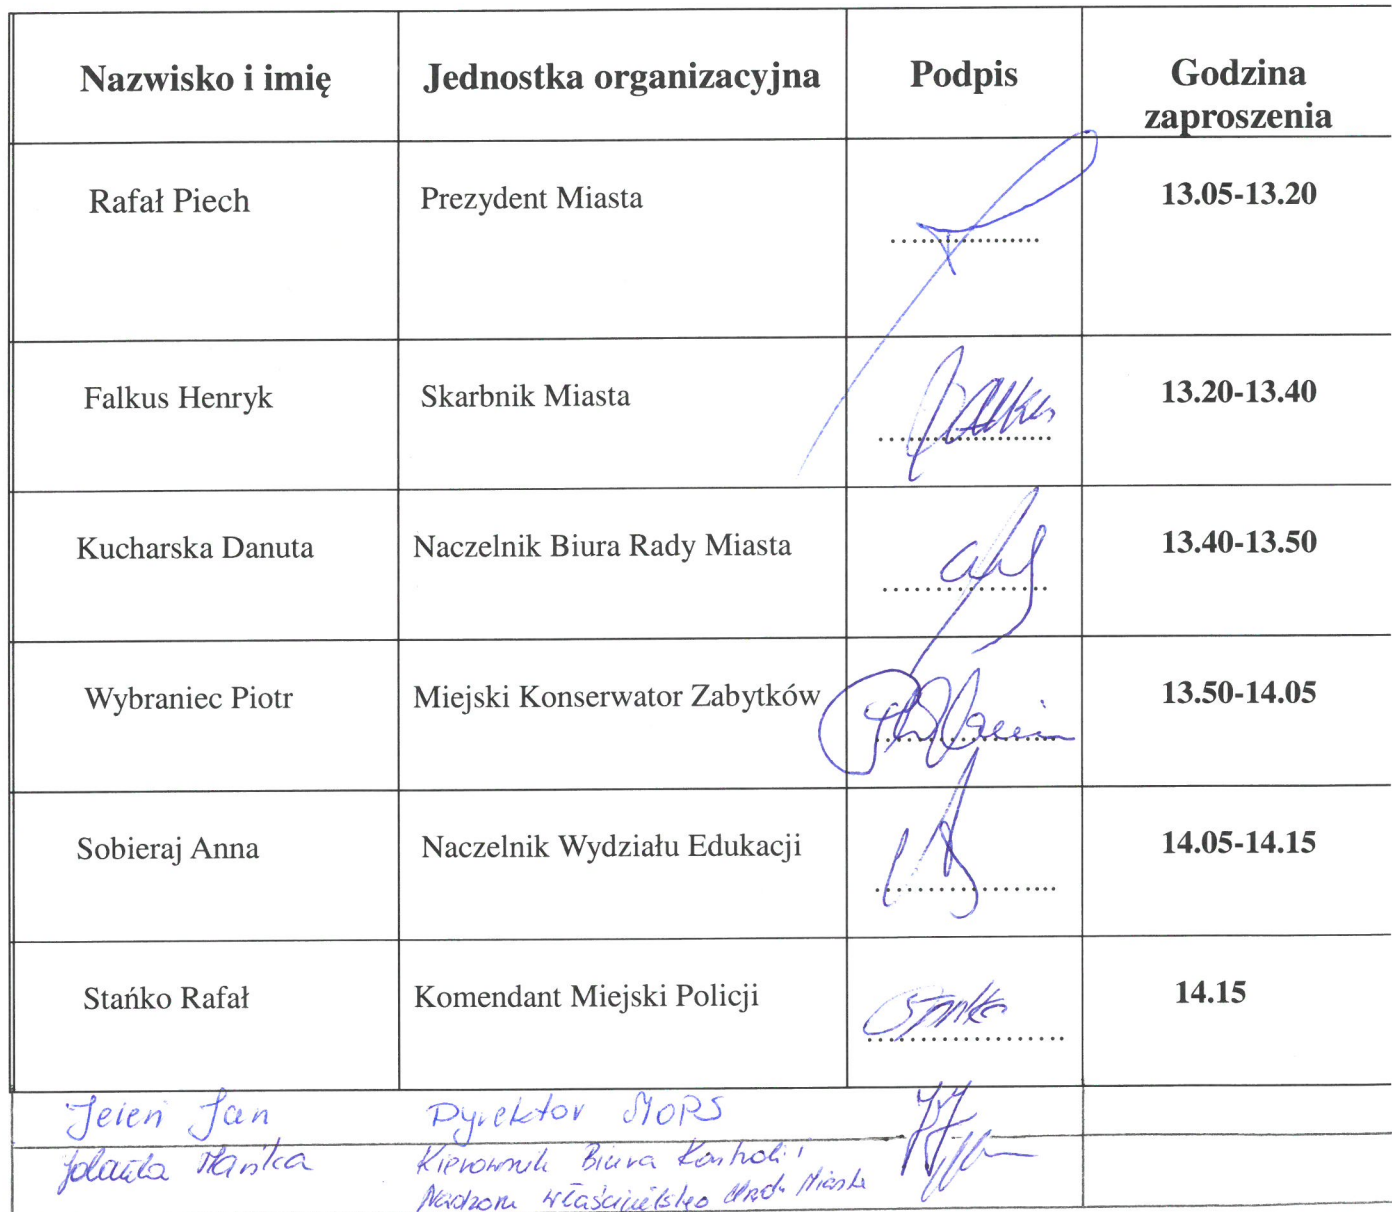 Nazwisko i imię Jednostka organizacyjna Podpis Godzina
zaproszenia
Rafał Piech Prezydent Miasta 13.05-13.20
Falkus Henryk Skarbnik Miasta 13.20-13.40
Kucharska Danuta Naczelnik Biura Rady Miasta 13.40-13.50
Wybraniec Piotr Miejski Konserwator Zabytków 13.50-14.05
Sobieraj Anna Naczelnik Wydziału Edukacji 14.05-14.15
Stańko Rafał Komendant Miejski Policji 14.15
Jeleń Jan Dyrektor MOPS
Jolanta Kierownik Biura Kontroli i
Miasta